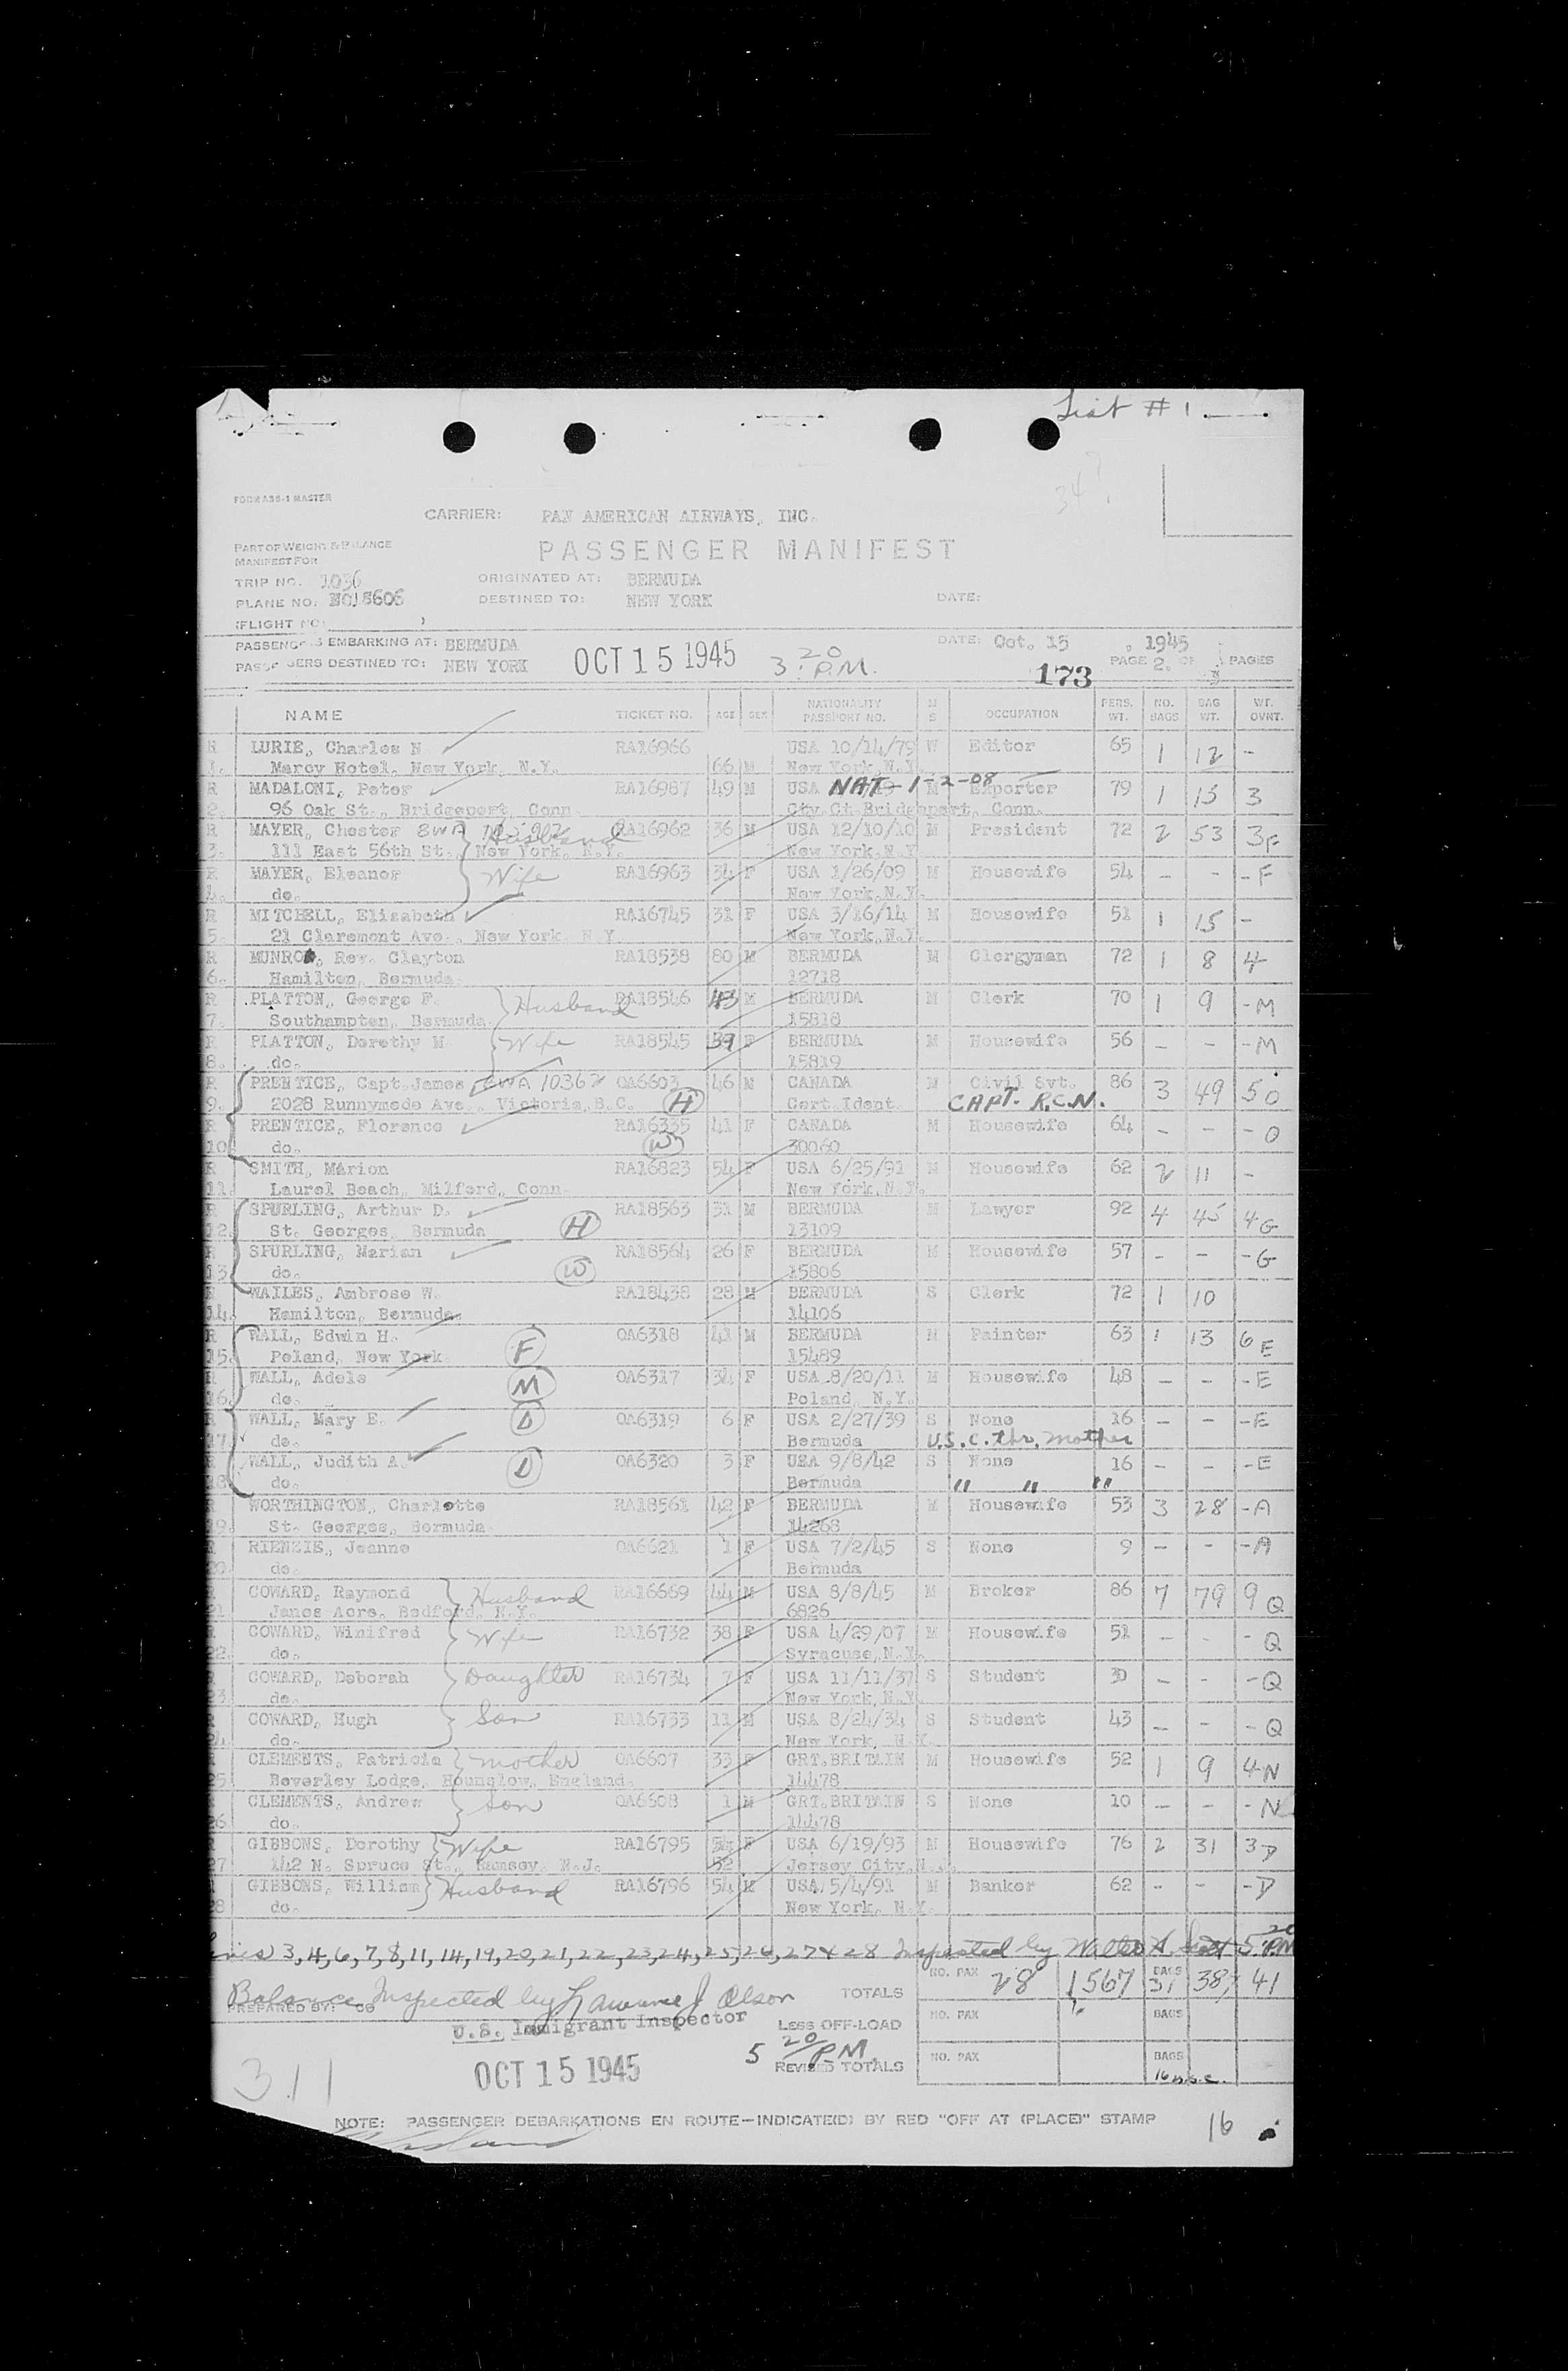 List # 1
FORM A38-1 MASTER
CARRIER: PAN AMERICAN AIRWAYS, INC.
PART OF WEIGHT & BALANCE
MANIFEST FOR
PASSENGER MANIFEST
TRIP NO. 1036 ORIGINATED AT: BERMUDA
PLANE NO. DESTINED TO: NEW YORK DATE:
(FLIGHT NO. )
PASSENGERS EMBARKING AT: BERMUDA DATE: Oct. 15, 1945
PASSENGERS DESTINED TO: NEW YORK OCT 15 1945 3:20 P.M. 173 PAGE 2. OF 3 PAGES
NAME TICKET NO. AGE SEX NATIONALITY PASSPORT NO. M S OCCUPATION PERS. WT. NO. BAGS BAG WT. WT. OVNT.
R LURIE, Charles N RA16966 USA 10/14/79 W Editor 65 1 12 -
1. Marcy Hotel, New York, N.Y. 66 M New York, N.Y.
R MADALONI, Peter RA16987 49 M USA NAT-1-2-08 M Exporter 79 1 15 3
2. 96 Oak St., Bridgeport, Conn. Cty. Ct. Bridgeport, Conn.
R MAYER, Chester Husband RA16962 36 M USA 12/10/10 M President 72 2 53 3F
3. 111 East 56th St., New York, N.Y. New York, N.Y.
R MAYER, Eleanor Wife RA16963 34 F USA 1/26/09 M Housewife 54 - - -F
4. do. New York, N.Y.
R MITCHELL, Elizabeth RA16745 31 F USA 3/16/14 M Housewife 51 1 15 -
5. 21 Claremont Ave., New York, N.Y. New York, N.Y.
R MUNRO, Rev. Clayton RA18538 80 M BERMUDA M Clergyman 72 1 8 4
6. Hamilton, Bermuda 12718
R PLATTON, George F. Husband RA18546 43 M BERMUDA M Clerk 70 1 9 -M
7. Southampton, Bermuda 15818
R PLATTON, Dorothy M. Wife RA18545 39 F BERMUDA M Housewife 56 - - -M
8. do. 15819
R PRENTICE, Capt. James OA6603 46 M CANADA M Civil Svt. 86 3 49 5 O
9. 2028 Runnymede Ave., Victoria, B.C. H Cert. Ident. CAPT. R.C.N.
R PRENTICE, Florence RA16335 41 F CANADA M Housewife 64 - - -O
10. do. W 30060
R SMITH, Marion RA16823 54 F USA 6/25/91 M Housewife 62 2 11 -
11. Laurel Beach, Milford, Conn. New York, N.Y.
R SPURLING, Arthur D. RA18563 31 M BERMUDA M Lawyer 92 4 45 4G
12. St. Georges, Bermuda H 13109
R SPURLING, Marian RA18564 26 F BERMUDA M Housewife 57 - - -G
13. do. W 15806
R WAILES, Ambrose W. RA18438 28 M BERMUDA S Clerk 72 1 10
14. Hamilton, Bermuda 14106
R WALL, Edwin H. OA6318 41 M BERMUDA M Painter 63 1 13 6E
15. Poland, New York F 15489
R WALL, Adele OA6317 34 F USA 8/20/11 M Housewife 48 - - -E
16. do. M Poland, N.Y.
R WALL, Mary E. OA6319 6 F USA 2/27/39 S None 16 - - -E
17. do. D Bermuda U.S.C. thr. mother
R WALL, Judith A. OA6320 3 F USA 9/8/42 S None 16 - - -E
18. do. D Bermuda " " "
R WORTHINGTON, Charlotte RA18561 42 F BERMUDA M Housewife 53 3 28 -A
19. St. Georges, Bermuda 14268
R RIENZIE, Jeanne OA6621 1 F USA 7/2/45 S None 9 - - -A
20. do. Bermuda
COWARD, Raymond Husband RA16669 44 M USA 8/8/45 M Broker 86 7 79 9Q
21 Janes Acre, Bedford, N.Y. 6826
COWARD, Winifred Wife RA16732 38 F USA 4/29/07 M Housewife 51 - - -Q
22. do. Syracuse, N.Y.
COWARD, Deborah Daughter RA16734 7 F USA 11/11/37 S Student 30 - - -Q
23. do. New York, N.Y.
COWARD, Hugh Son RA16733 11 M USA 8/24/34 S Student 43 - - -Q
24. do. New York, N.Y.
CLEMENTS, Patricia mother OA6607 33 F GRT.BRITAIN M Housewife 52 1 9 4N
25. Beverley Lodge, Hounslow, England. 14478
CLEMENTS, Andrew Son OA6608 1 M GRT.BRITAIN S None 10 - - -N
26. do. 14478
GIBBONS, Dorothy Wife RA16795 54 F USA 6/19/93 M Housewife 76 2 31 3D
27 142 N. Spruce St., Ramsey, N.J. 52 Jersey City, N.J.
GIBBONS, William Husband RA16796 54 M USA 5/4/91 M Banker 62 - - -D
28 do. New York, N.Y.
Lines 3,4,6,7,8,11,14,19,20,21,22,23,24,25,26,27 & 28 Inspected by Walter A. 5 20 P.M
Balance Inspected by Lawrence J Olson TOTALS NO. PAX 28 1567 BAGS 31 387 41
PREPARED BY: CG
U.S. Immigrant Inspector LESS OFF-LOAD NO. PAX BAGS
OCT 15 1945 5 20 P.M. REVISED TOTALS NO. PAX BAGS
311
NOTE: PASSENGER DEBARKATIONS EN ROUTE—INDICATE(D) BY RED "OFF AT (PLACE)" STAMP 16